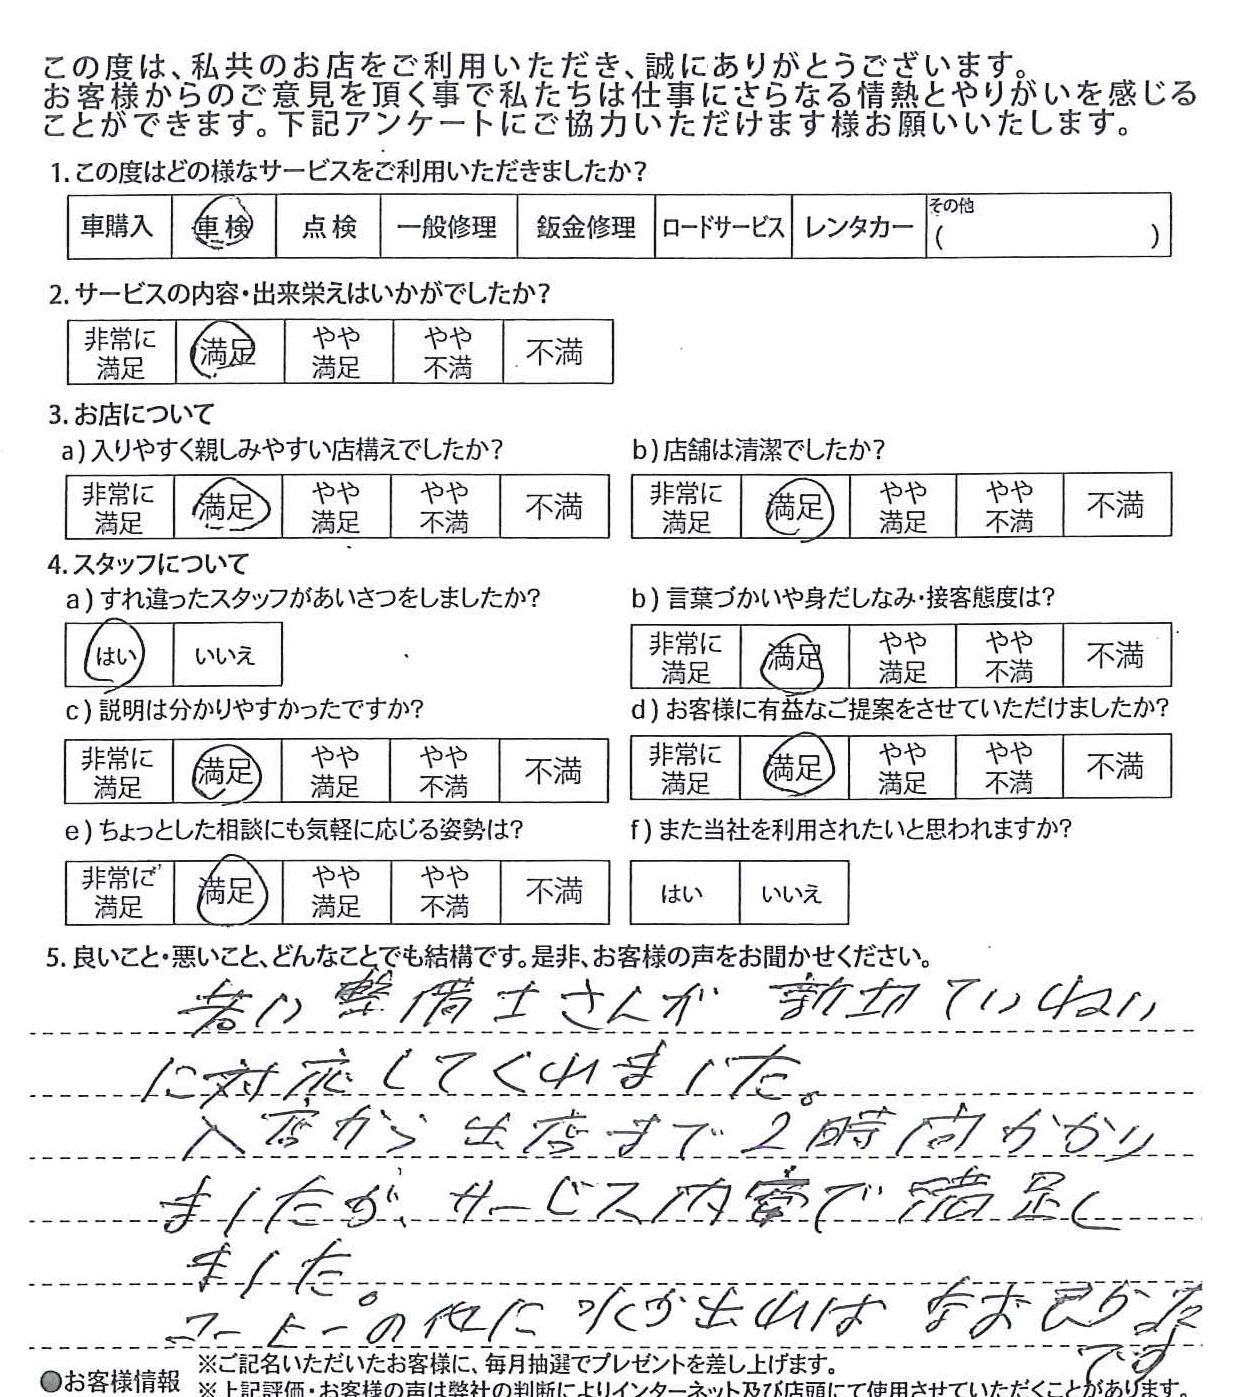 この度は、私共のお店をご利用いただき、誠にありがとうございます。
お客様からのご意見を頂く事で私たちは仕事にさらなる情熱とやりがいを感じる
ことができます。下記アンケートにご協力いただけます様お願いいたします。
1.この度はどの様なサービスをご利用いただきましたか?
車購入 車検 点検 一般修理 鈑金修理 ロードサービス レンタカー その他 ( )
2.サービスの内容・出来栄えはいかがでしたか?
非常に満足 満足 やや満足 やや不満 不満
3.お店について
a)入りやすく親しみやすい店構えでしたか? b)店舗は清潔でしたか?
非常に満足 満足 やや満足 やや不満 不満 非常に満足 満足 やや満足 やや不満 不満
4.スタッフについて
a)すれ違ったスタッフがあいさつをしましたか? b)言葉づかいや身だしなみ・接客態度は?
はい いいえ 非常に満足 満足 やや満足 やや不満 不満
c)説明は分かりやすかったですか? d)お客様に有益なご提案をさせていただけましたか?
非常に満足 満足 やや満足 やや不満 不満 非常に満足 満足 やや満足 やや不満 不満
e)ちょっとした相談にも気軽に応じる姿勢は? f)また当社を利用されたいと思われますか?
非常に満足 満足 やや満足 やや不満 不満 はい いいえ
5.良いこと・悪いこと、どんなことでも結構です。是非、お客様の声をお聞かせください。
若い整備士さんが 親切ていねい
に対応してくれました。
入店から出店まで2時間かかり
ましたが、サービス内容で満足し
ました。
コーヒーの他に水が出れば なお
です
●お客様情報 ※ご記名いただいたお客様に、毎月抽選でプレゼントを差し上げます。
※上記評価・お客様の声は弊社の判断によりインターネット及び店頭にて使用させていただくことがあります。